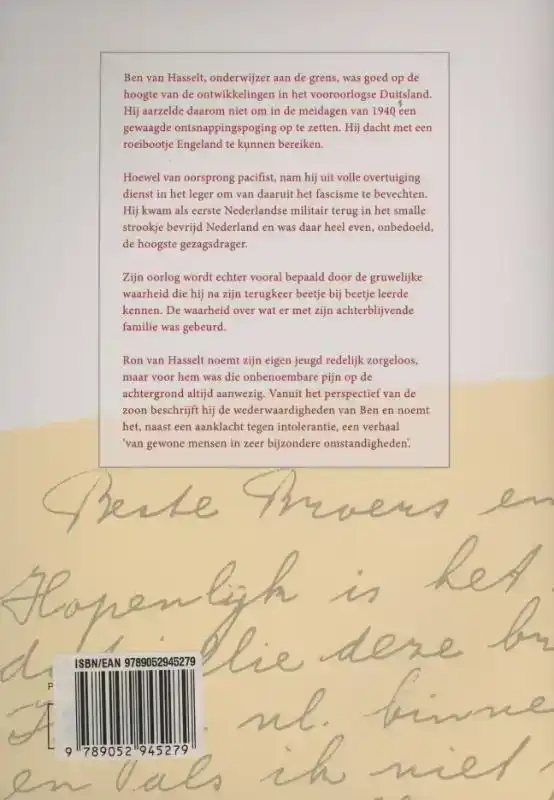 Ben van Hasselt, onderwijzer aan de grens, was goed op de
hoogte van de ontwikkelingen in het vooroorlogse Duitsland.
Hij aarzelde daarom niet om in de meidagen van 1940 een
gewaagde ontsnappingspoging op te zetten. Hij dacht met een
roeibootje Engeland te kunnen bereiken.
Hoewel van oorsprong pacifist, nam hij uit volle overtuiging
dienst in het leger om van daaruit het fascisme te bevechten.
Hij kwam als eerste Nederlandse militair terug in het smalle
strookje bevrijd Nederland en was daar heel even, onbedoeld,
de hoogste gezagsdrager.
Zijn oorlog wordt echter vooral bepaald door de gruwelijke
waarheid die hij na zijn terugkeer beetje bij beetje leerde
kennen. De waarheid over wat er met zijn achterblijvende
familie was gebeurd.
Ron van Hasselt noemt zijn eigen jeugd redelijk zorgeloos,
maar voor hem was die onbenoembare pijn op de
achtergrond altijd aanwezig. Vanuit het perspectief van de
zoon beschrijft hij de wederwaardigheden van Ben en noemt
het, naast een aanklacht tegen intolerantie, een verhaal
'van gewone mensen in zeer bijzondere omstandigheden'.
Beste Broers en
Hopenlijk is het
deze
nl. binne
en als ik niet
ISBN/EAN 9789052945279
9 789052 945279